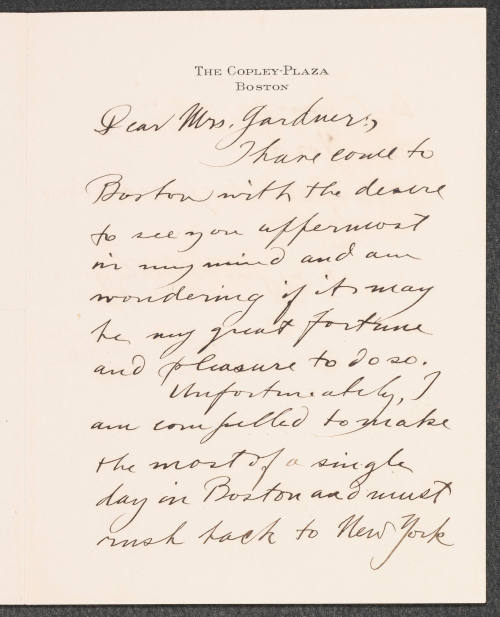 THE COPLEY-PLAZA
BOSTON
Dear Mrs. Gardner,
I have come to
Boston with the desire
to see you uppermost
in my mind and am
wondering if it may
be my great fortune
and pleasure to do so.
Unfortunately, I
am compelled to make
the most of a single
day in Boston and must
rush back to New York